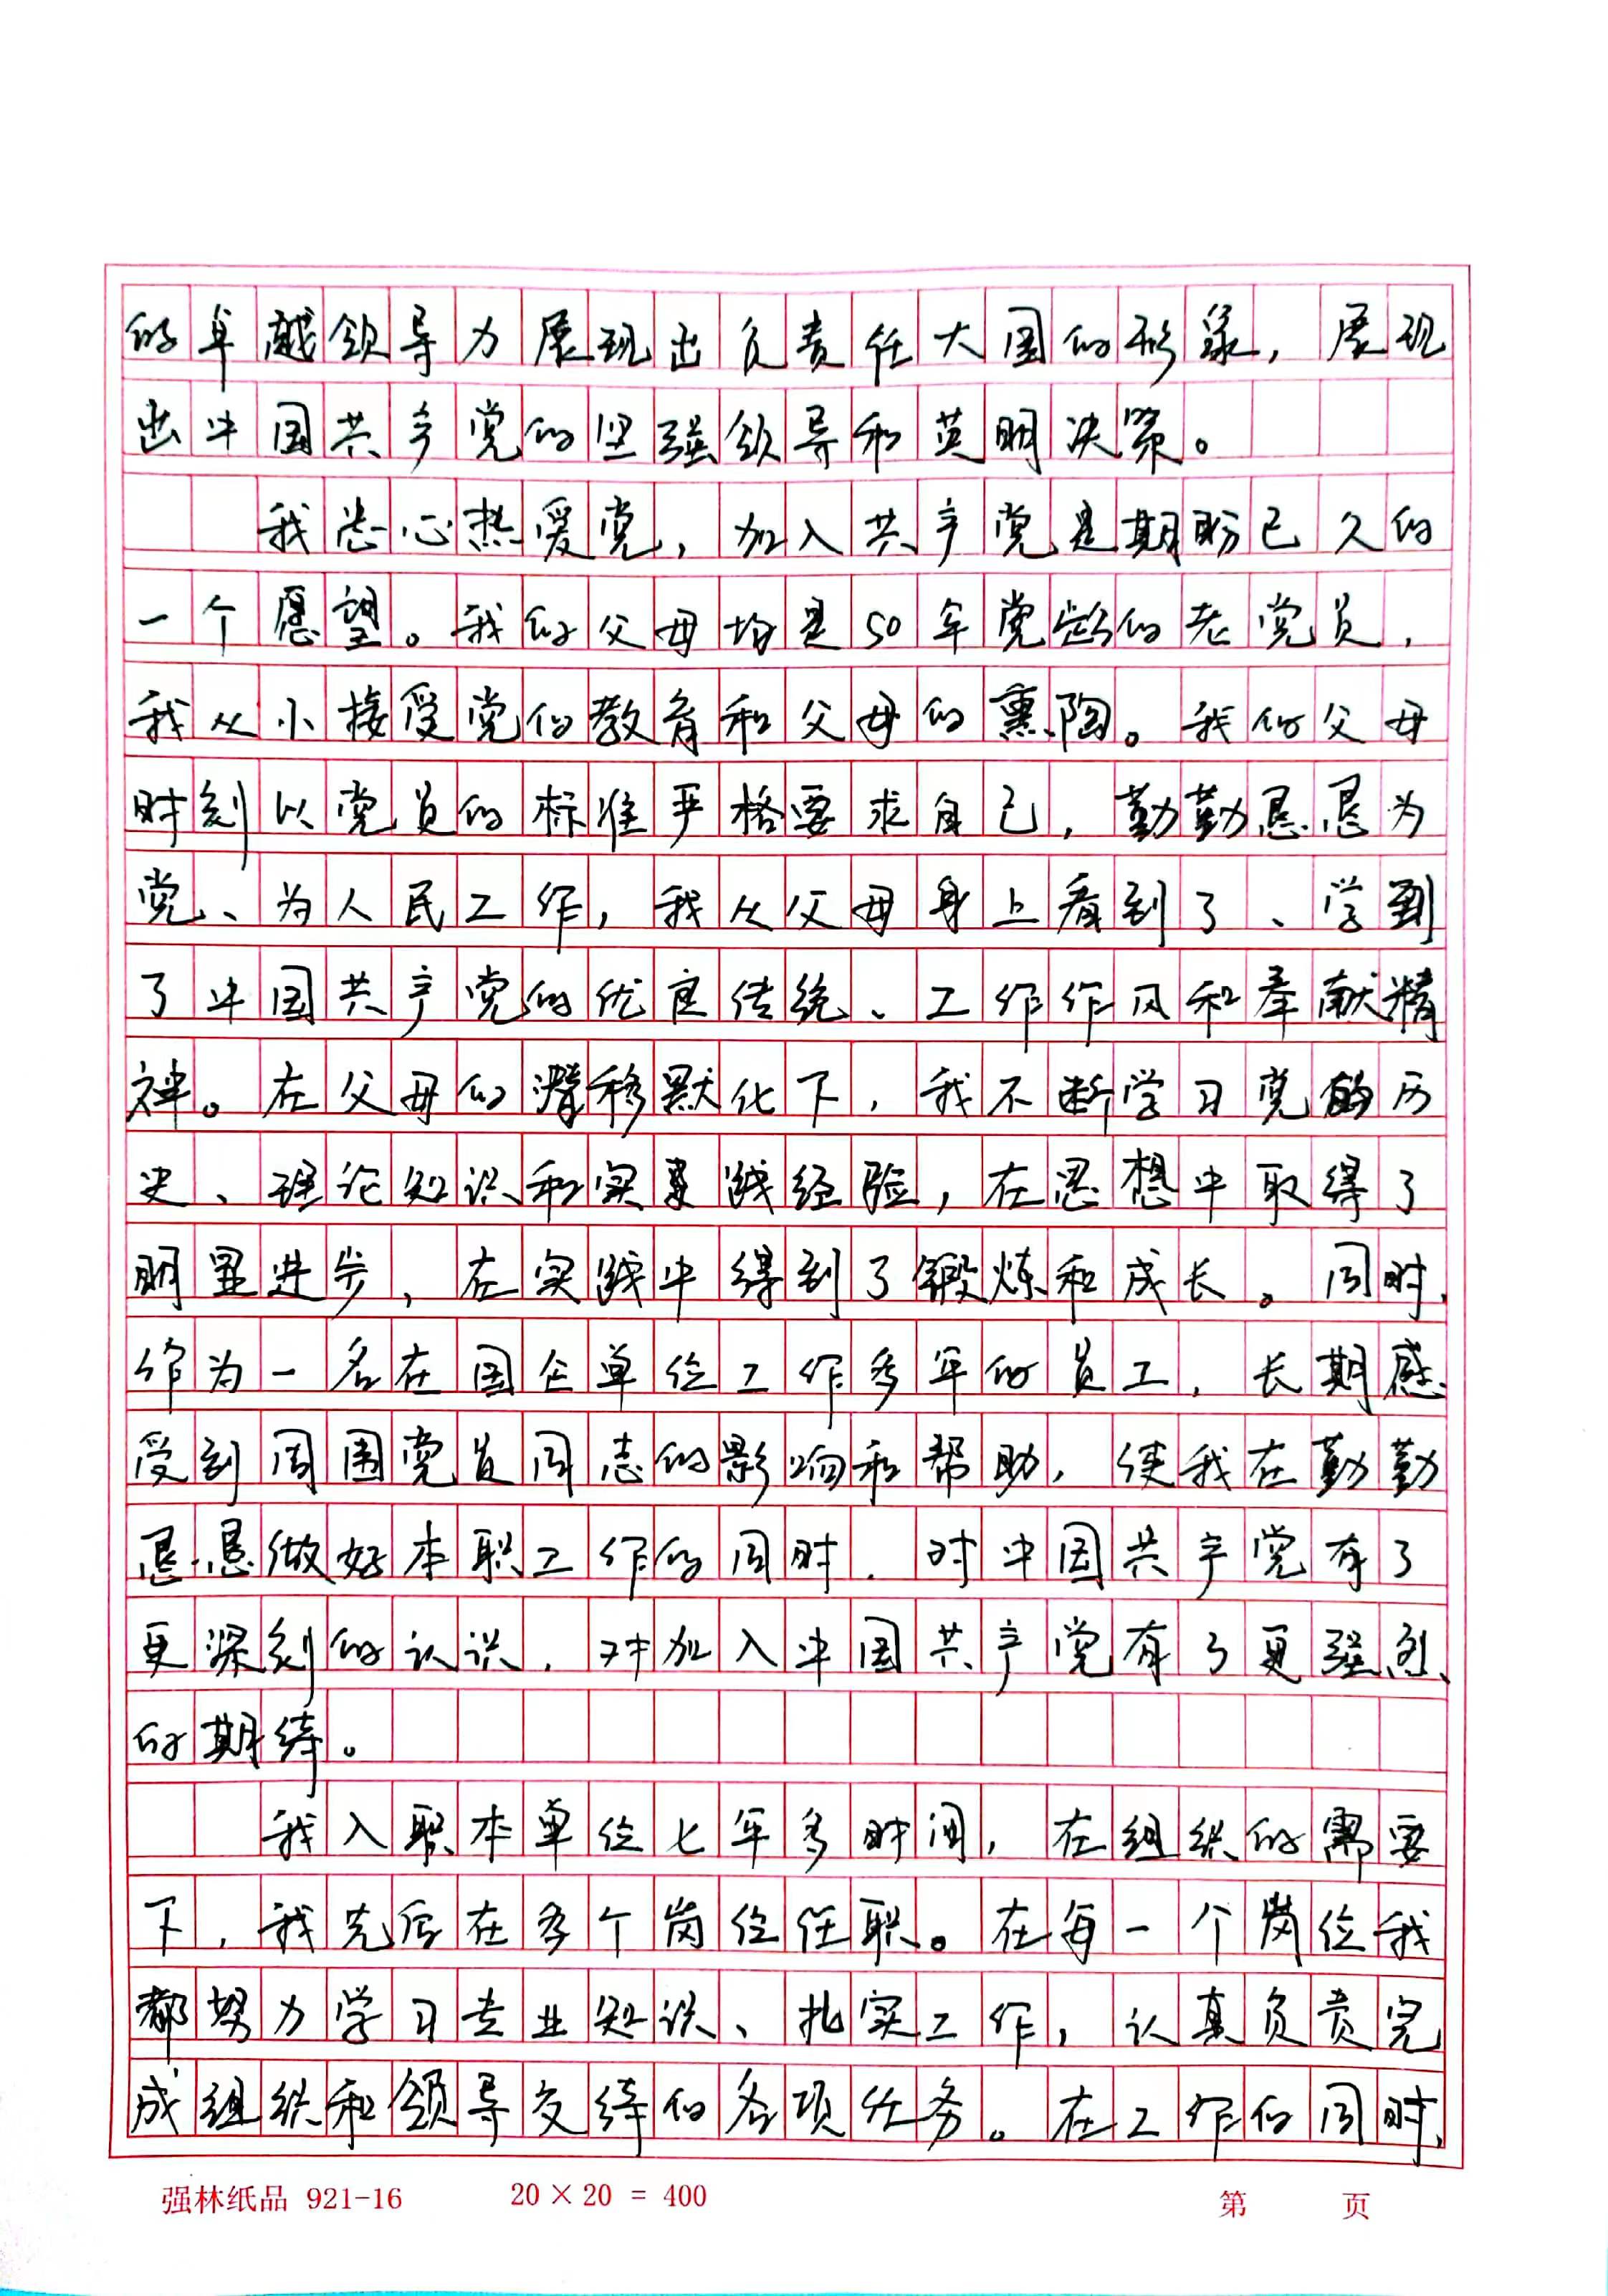 的卓越领导力展现出负责任大国的形象，展现
出中国共产党的坚强领导和英明决策。
我衷心热爱党，加入共产党是期盼已久的
一个愿望。我的父母均是50年党龄的老党员，
我从小接受党的教育和父母的熏陶。我的父母
时刻以党员的标准严格要求自己，勤勤恳恳为
党、为人民工作，我从父母身上看到了、学到
了中国共产党的优良传统、工作作风和奉献精
神。在父母的潜移默化下，我不断学习党的历
史、理论知识和实践经验，在思想中取得了
明显进步，在实践中得到了锻炼和成长。同时，
作为一名在国企单位工作多年的员工，长期感
受到周围党员同志的影响和帮助，使我在勤勤
恳恳做好本职工作的同时，对中国共产党有了
更深刻的认识，对加入中国共产党有了更强烈
的期待。
我入职本单位七年多时间，在组织的需要
下，我先后在多个岗位任职。在每一个岗位我
都努力学习专业知识、扎实工作，认真负责完
成组织和领导交待的各项任务。在工作的同时，
强林纸品 921-16 20×20=400 第 页